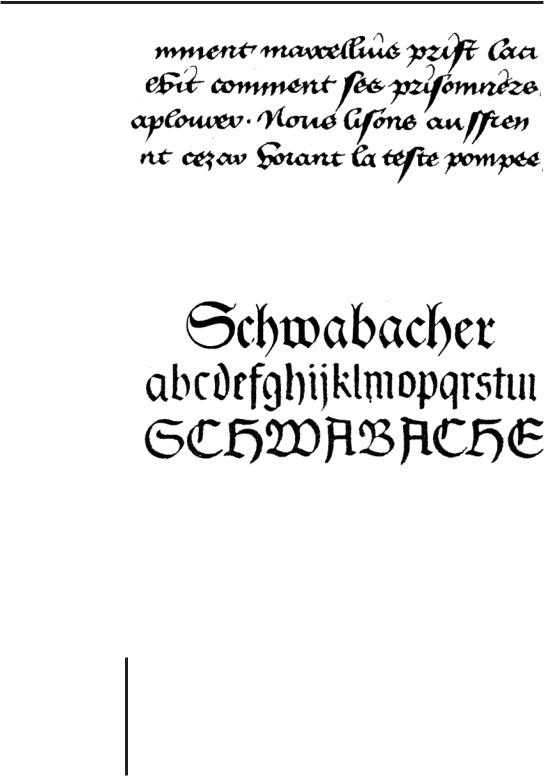 mment marcellius prist laci
comment ses prisonniers
aplourer. Nous lisons
nt cezar la teste pompee
Schwabacher
abcdefghijklmnopqrstuı
SCHWABACHE